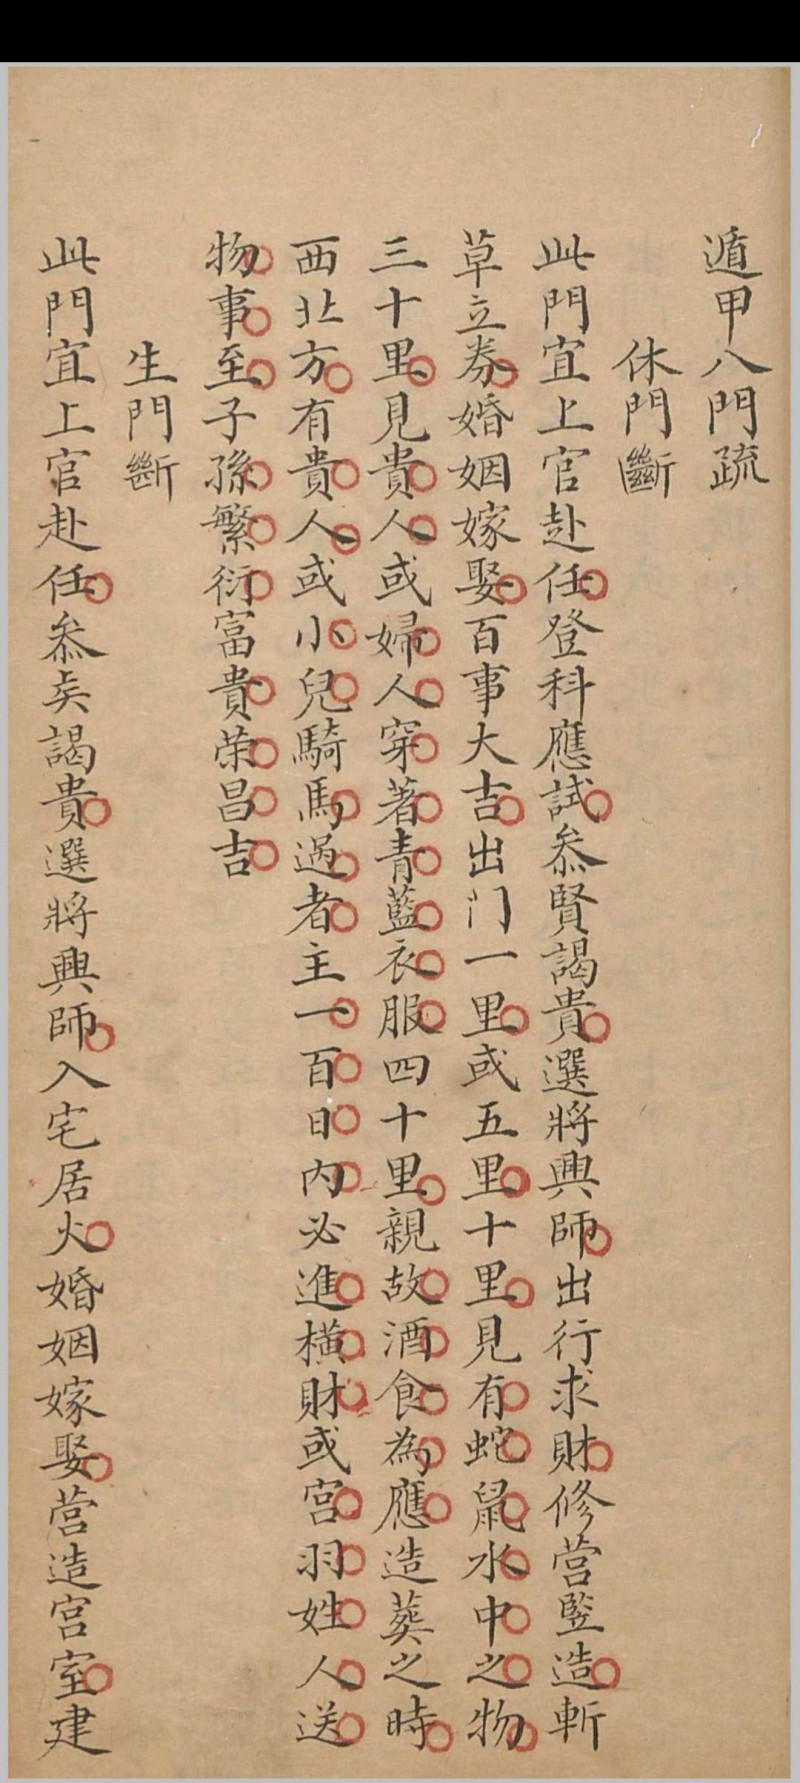 遁甲八門疏
休門斷
此門宜上官赴任登科應試叅賢謁貴選將興師出行求財修营竪造斬
草立券婚姻嫁娶百事大吉出门一里或五里十里見有蛇鼠水中之物
三十里見貴人或婦人穿著青藍衣服四十里親故酒食為應造葬之時
西北方有貴人或小兒騎馬過者主一百日内必進橫財或宫羽姓人送
物事至子孫繁衍富貴荣昌吉
生門斷
此門宜上官赴任叅矦謁貴選將興師入宅居火婚姻嫁娶营造宫室建